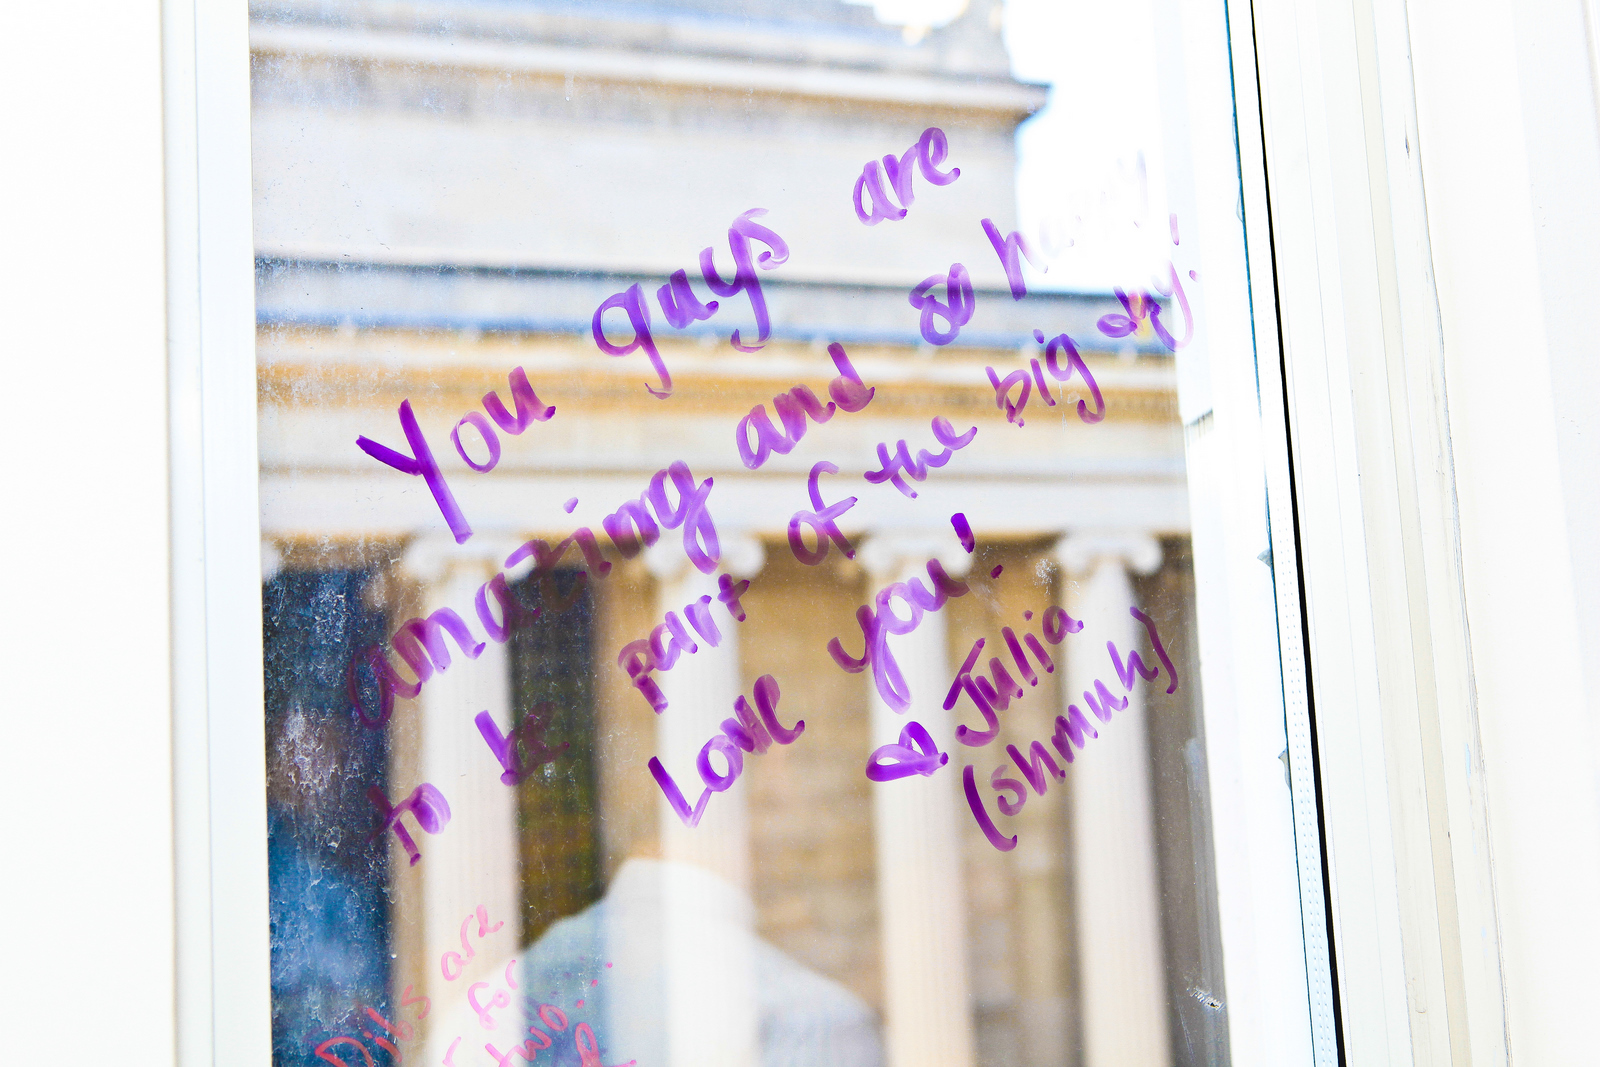 You guys are
amazing and so happy
to be part of the big day!
Love you!
♡ Julia
(shmuh)
Dibs are
for
two...